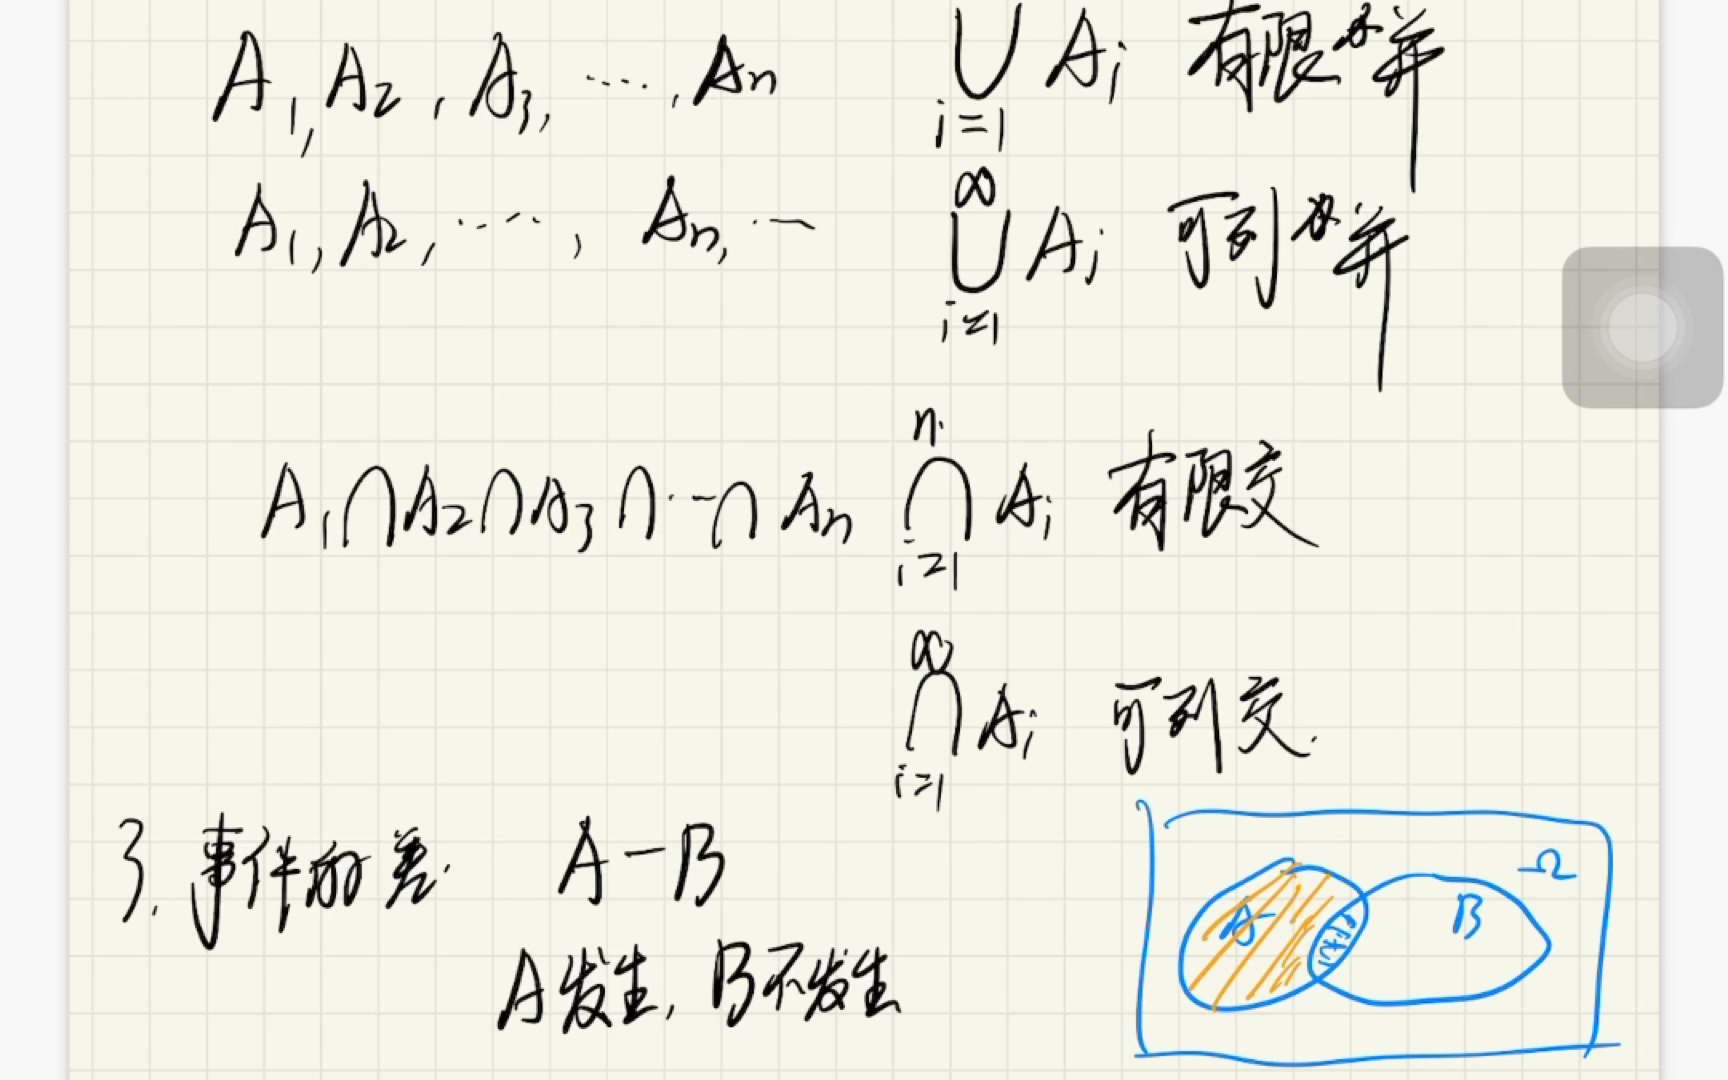 A₁, A₂, A₃, ……, Aₙ ⋃ i=1 Aᵢ 有限并
A₁, A₂, ……, Aₙ, … ∞ ⋃ i=1 Aᵢ 可列并
A₁∩A₂∩A₃∩…∩Aₙ n ⋂ i=1 Aᵢ 有限交
∞ ⋂ i=1 Aᵢ 可列交.
3. 事件的差. A-B
A发生, B不发生
Ω
A B